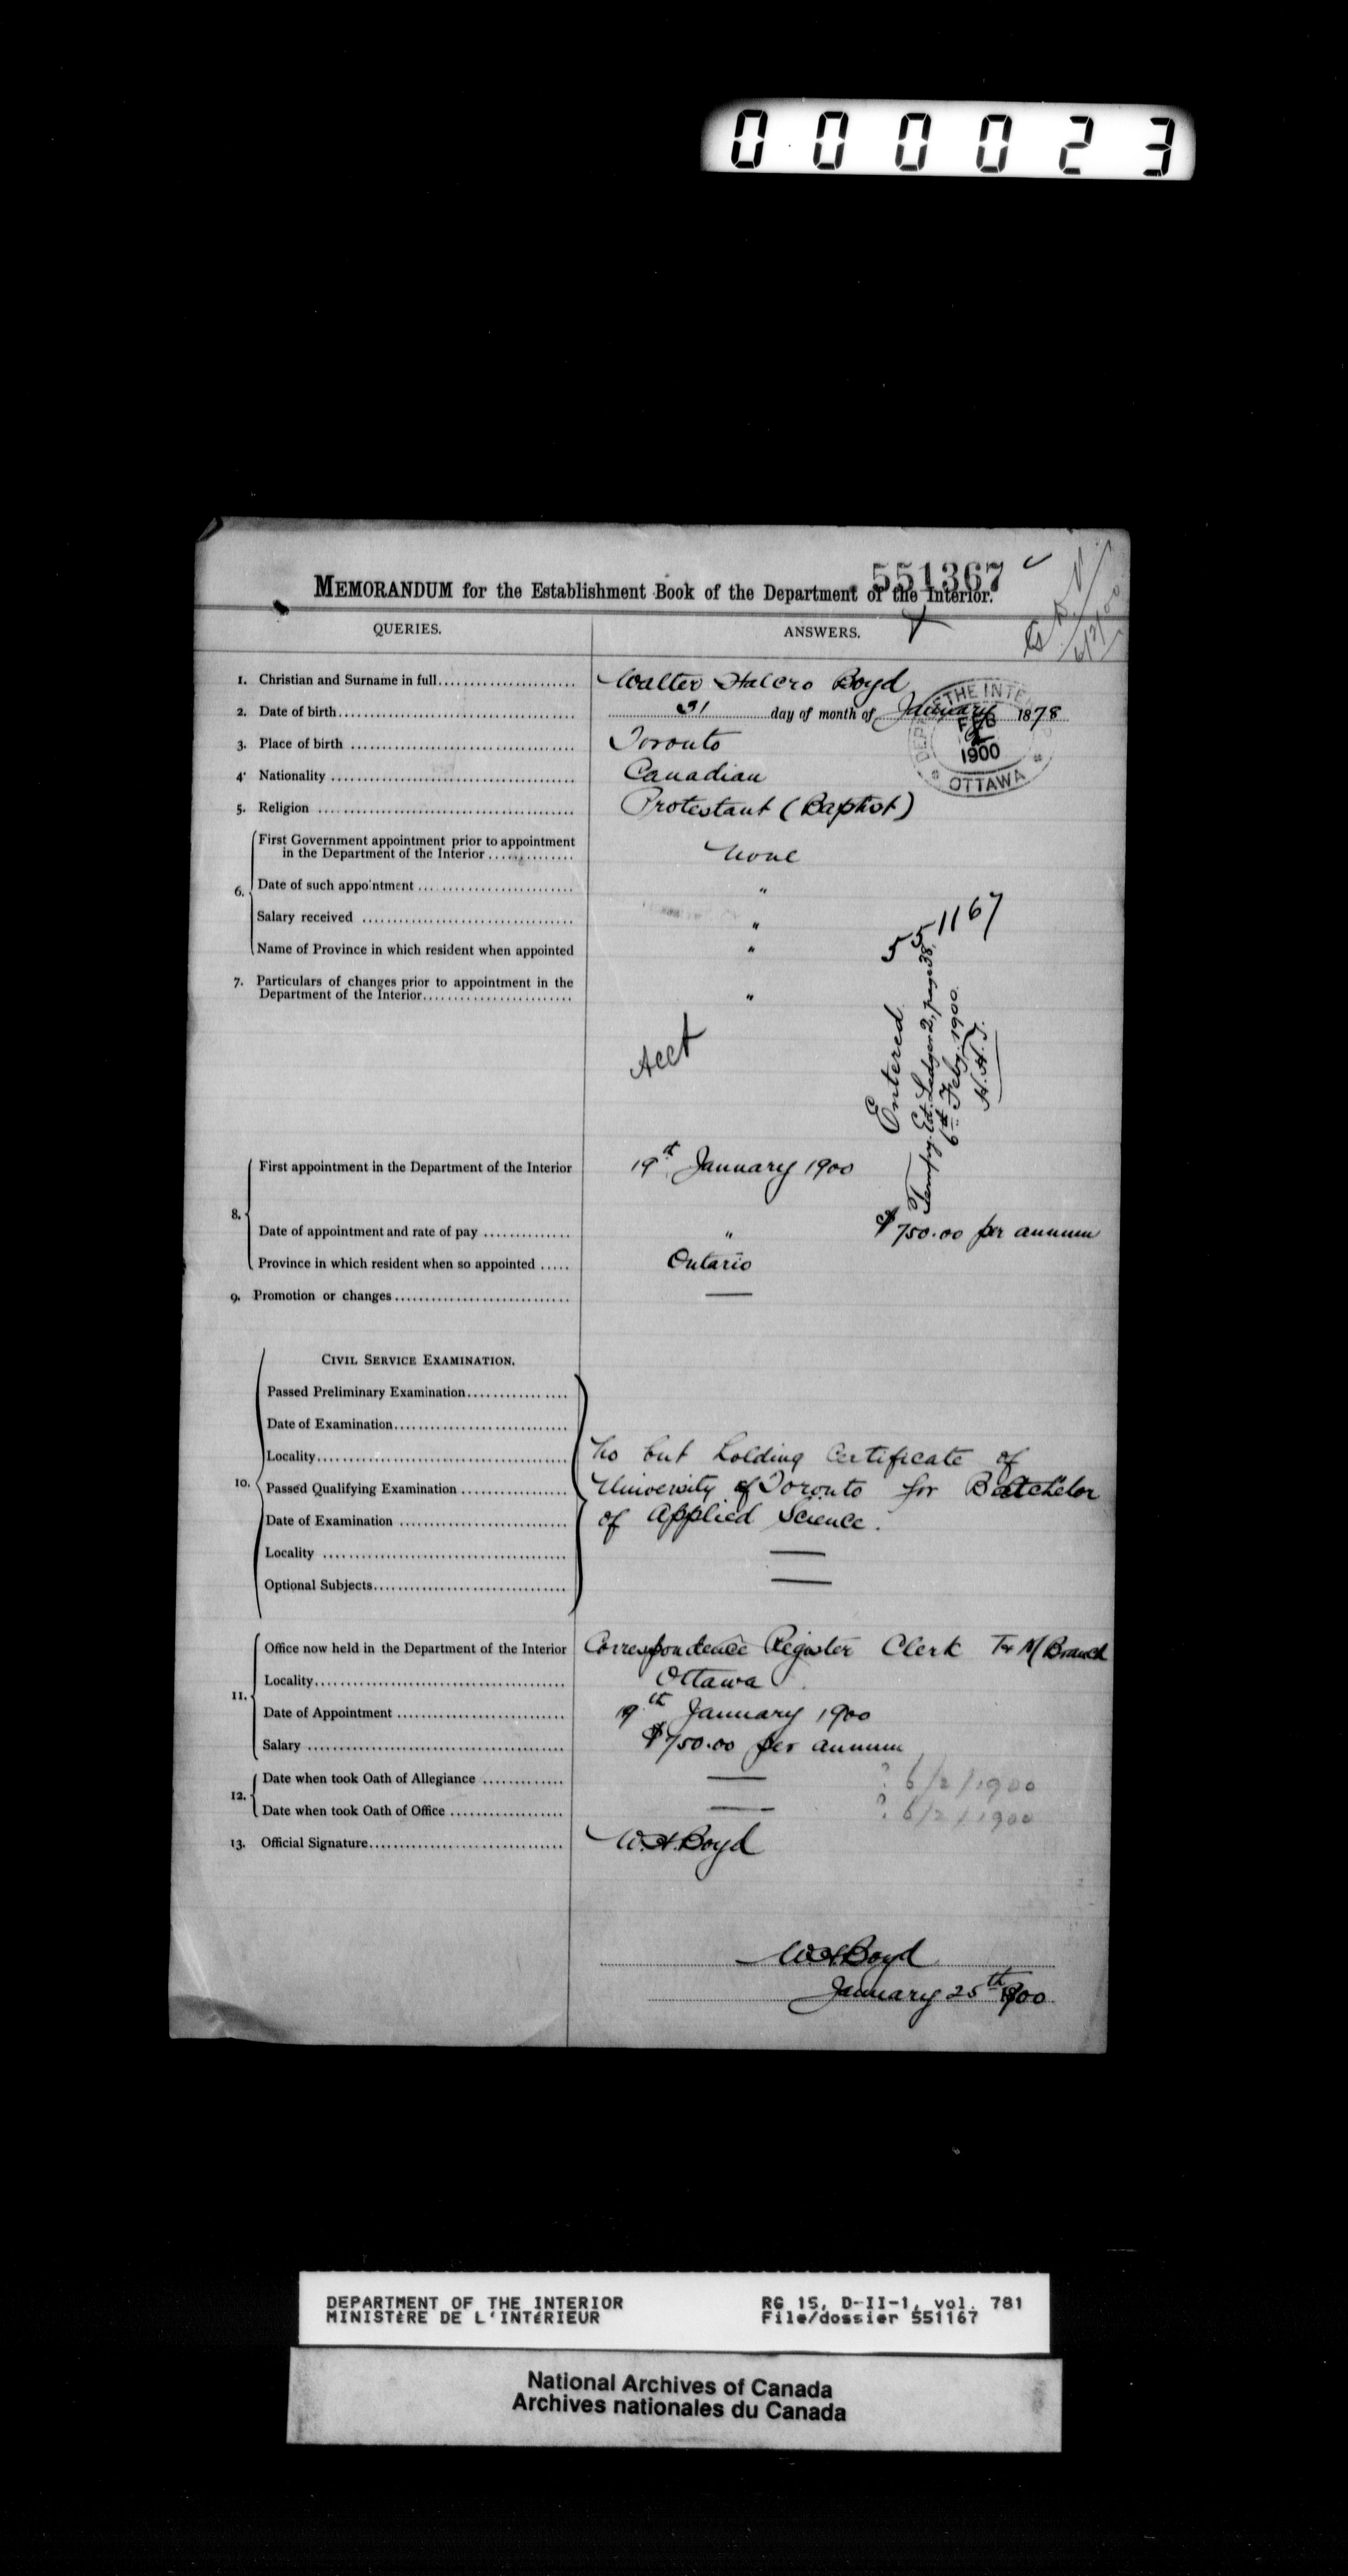 000023
551367
MEMORANDUM for the Establishment Book of the Department of the Interior.
QUERIES. ANSWERS.
6/2/00
1. Christian and Surname in full Walter Halcro Boyd
2. Date of birth 31 day of month of January 1878
DEPT THE INTE
FEB
2
1900
* OTTAWA *
3. Place of birth Toronto
4. Nationality Canadian
5. Religion Protestant (Baptist)
6. First Government appointment prior to appointment
in the Department of the Interior None
Date of such appointment "
Salary received "
Name of Province in which resident when appointed "
7. Particulars of changes prior to appointment in the
Department of the Interior "
551167
Acct
Entered
Tempy. Est. Ledger 2, page 38,
6th Feby. 1900.
H.H.T.
8. First appointment in the Department of the Interior 19th January 1900
Date of appointment and rate of pay " $750.00 per annum
Province in which resident when so appointed Ontario
9. Promotion or changes —
10. CIVIL SERVICE EXAMINATION.
Passed Preliminary Examination
Date of Examination
Locality No but holding Certificate of
Passed Qualifying Examination University of Toronto for Batchelor
Date of Examination of Applied Science.
Locality —
Optional Subjects —
11. Office now held in the Department of the Interior Correspondence Register Clerk T & M Branch
Locality Ottawa
Date of Appointment 19th January 1900
Salary $750.00 per annum
12. Date when took Oath of Allegiance — ? 6/2/1900
Date when took Oath of Office — ? 6/2/1900
13. Official Signature W.H.Boyd
W.H.Boyd
January 25th 1900
DEPARTMENT OF THE INTERIOR RG 15, D-II-1, vol. 781
MINISTÈRE DE L'INTÉRIEUR File/dossier 551167
National Archives of Canada
Archives nationales du Canada